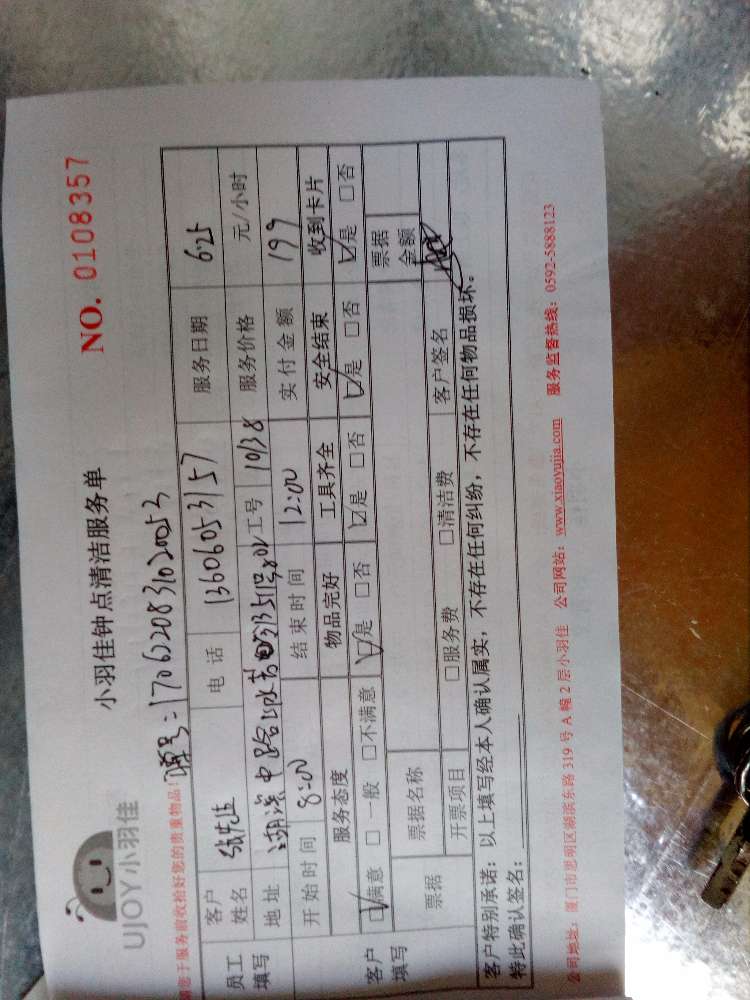 UJOY小羽佳
小羽佳钟点清洁服务单
NO. 0108357
请您于服务前收拾好您的贵重物品！
单号：17062208310200053
员工填写
客户姓名 张先生 电话 13606053157 服务日期 6.25
地址 工号 1038 服务价格 元/小时
开始时间 8:00 结束时间 12:00 实付金额 199
客户填写
服务态度 物品完好 工具齐全 安全结束 收到卡片
☑满意 □一般 □不满意 ☑是 □否 ☑是 □否 ☑是 □否 ☑是 □否
票据 票据名称 票据金额
开票项目 □服务费 □清洁费 客户签名
客户特别承诺：以上填写经本人确认属实，不存在任何纠纷，不存在任何物品损坏。
特此确认签名：
公司地址：厦门市思明区湖滨东路 319 号 A 幢 2 层小羽佳 公司网站：www.xiaoyujia.com 服务监督热线：0592-5888123